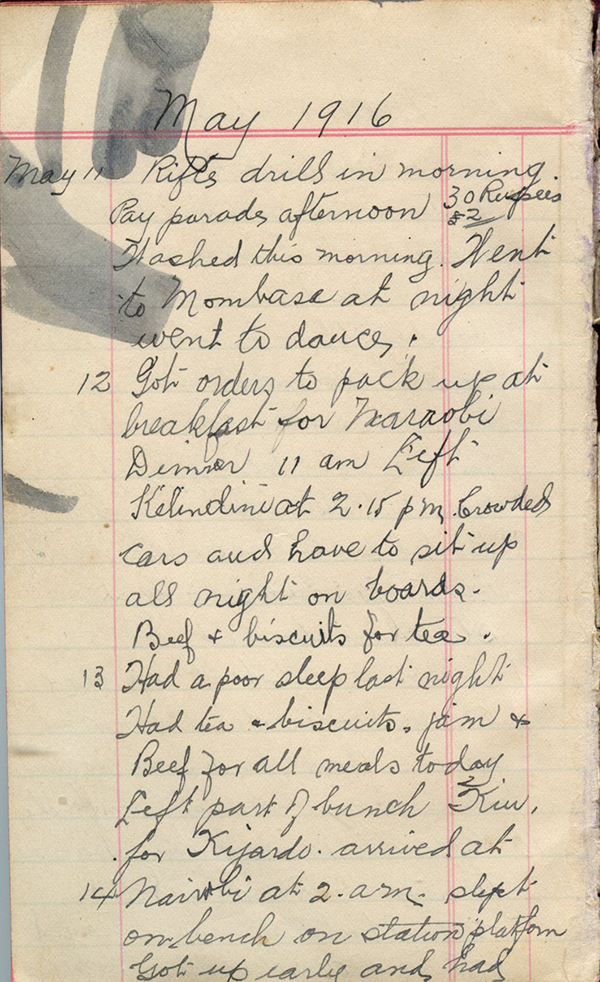 May 1916
May 11 Rifle drill in morning.
Pay parade afternoon 30 Rupees
£2
Washed this morning. Went
to Mombasa at night
went to dance.
12 Got orders to pack up at
breakfast for Naraobi
Dinner 11 am Left
Kelindini at 2.15 pm. Crowded
cars and have to sit up
all night on boards.
Beef & biscuits for tea.
13 Had a poor sleep last night
Had tea & biscuits, jam &
Beef for all meals today
Left part of bunch Kiu,
for Kijardo. arrived at
14 Nairobi at 2. a.m. slept
on bench on station platform
Got up early and had